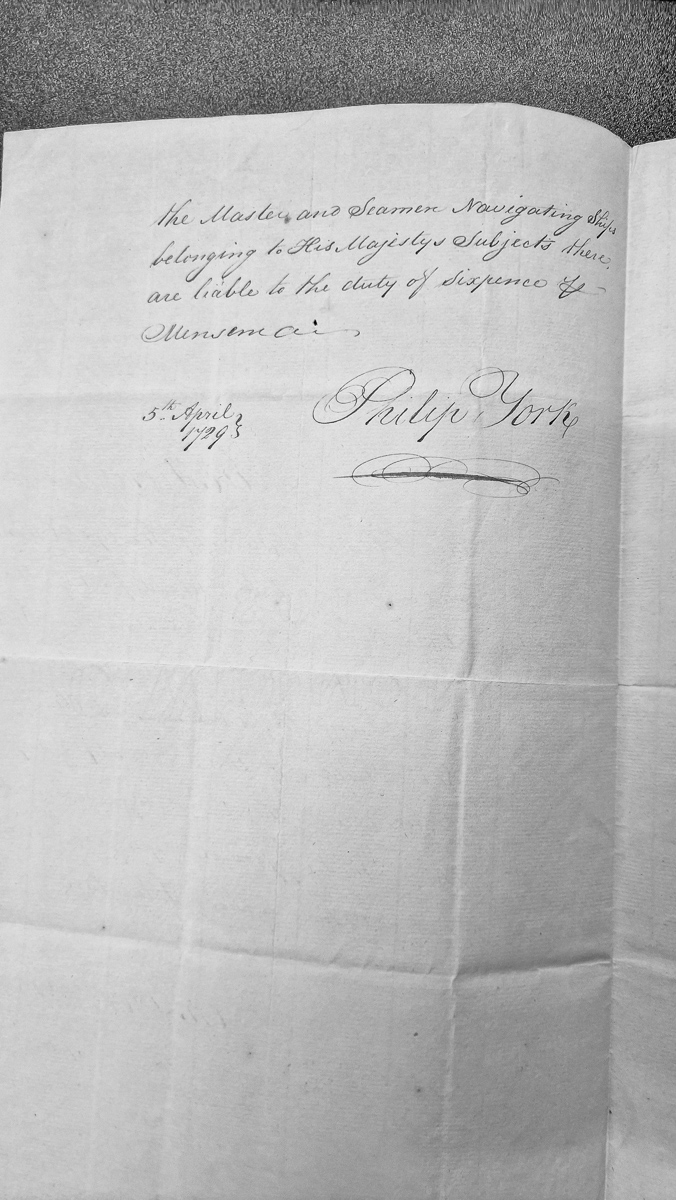 the Master and Seamen Navigating Ships
belonging to His Majestys Subjects there,
are liable to the duty of Sixpence ⅌
Mensem
5th April
1729
Philip York